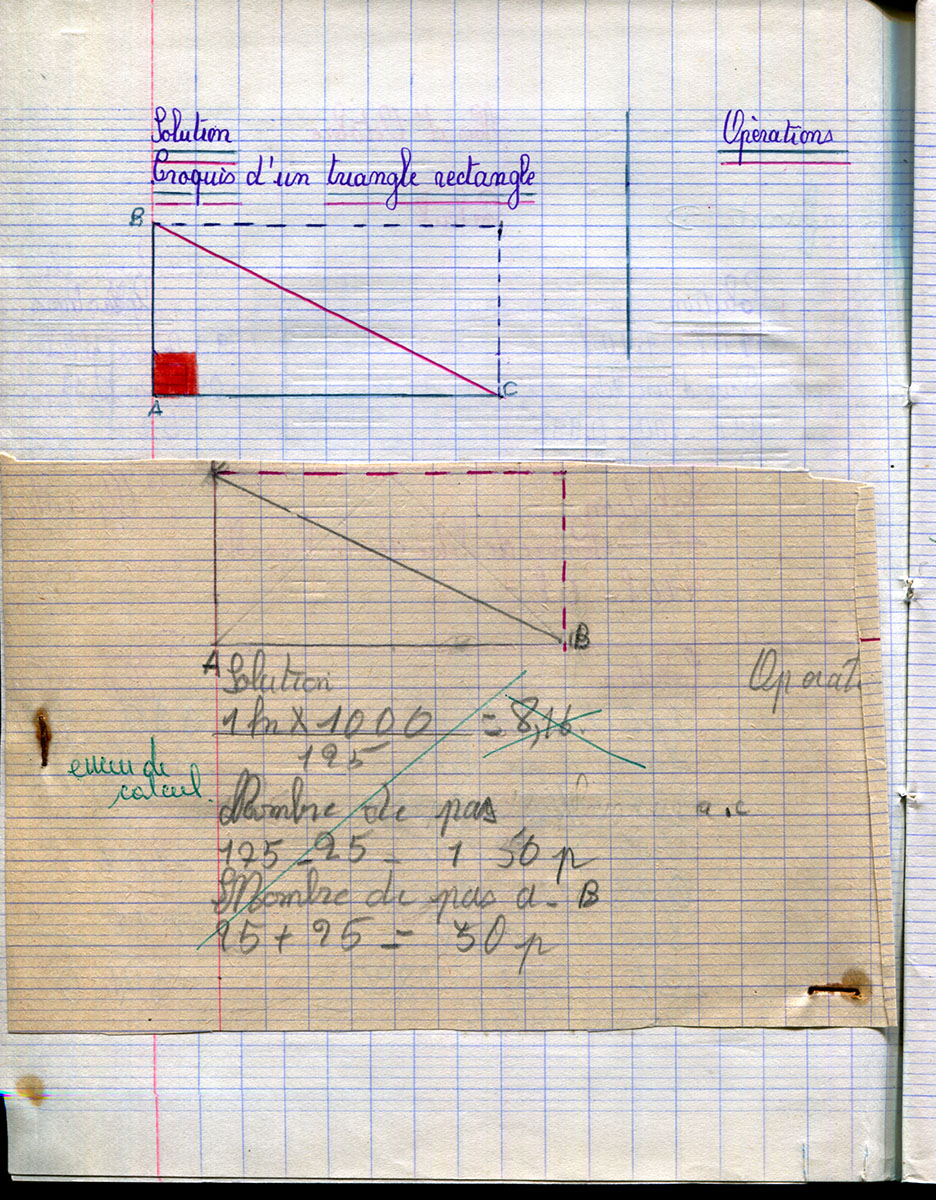 Solution
Opérations
Croquis d'un triangle rectangle
B
A
C
B
A
Solution
Operat
1 h × 1000 = 8,16
125
erreur de
calcul.
Nombre de pas a.c
125 - 25 = 1 50 p
Nombre de pas a - B
25 + 25 = 50 p